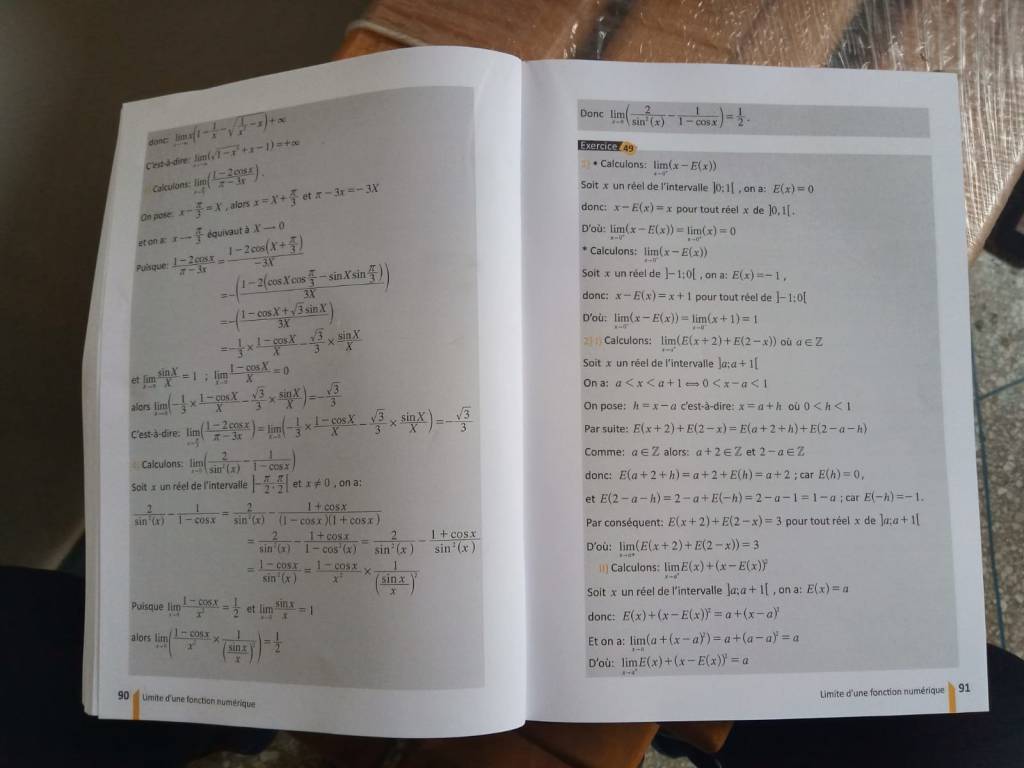 donc: lim_{x→-∞} x(1 - 1/x - √(1/x² - x)) + ∞
C'est-à-dire: lim_{x→-∞} (√(1-x³) + x - 1) = +∞
Calculons: lim_{x→π/3} ((1-2cosx)/(π-3x)).
On pose: x - π/3 = X, alors x = X + π/3 et π - 3x = -3X
et on a: x → π/3 équivaut à X → 0
Puisque: (1-2cosx)/(π-3x) = (1-2cos(X+π/3))/(-3X)
= -((1-2(cosX cos π/3 - sinX sin π/3))/(3X))
= -((1-cosX+√3 sinX)/(3X))
= -1/3 × (1-cosX)/X - √3/3 × sinX/X
et lim_{X→0} sinX/X = 1 ; lim_{X→0} (1-cosX)/X = 0
alors lim_{X→0} (-1/3 × (1-cosX)/X - √3/3 × sinX/X) = -√3/3
C'est-à-dire: lim_{x→π/3} ((1-2cosx)/(π-3x)) = lim_{X→0} (-1/3 × (1-cosX)/X - √3/3 × sinX/X) = -√3/3
Calculons: lim_{x→0} (2/sin²(x) - 1/(1-cosx))
Soit x un réel de l'intervalle ]-π/2 ; π/2[ et x ≠ 0, on a:
2/sin²(x) - 1/(1-cosx) = 2/sin²(x) - (1+cosx)/((1-cosx)(1+cosx))
= 2/sin²(x) - (1+cosx)/(1-cos²(x)) = 2/sin²(x) - (1+cosx)/sin²(x)
= (1-cosx)/sin²(x) = (1-cosx)/x² × 1/(sinx/x)²
Puisque lim_{x→0} (1-cosx)/x² = 1/2 et lim_{x→0} sinx/x = 1
alors lim_{x→0} ((1-cosx)/x² × 1/(sinx/x)²) = 1/2
90 Limite d'une fonction numérique
Donc lim_{x→0} (2/sin²(x) - 1/(1-cosx)) = 1/2.
Exercice 49
1) • Calculons: lim_{x→0⁺} (x-E(x))
Soit x un réel de l'intervalle ]0;1[, on a: E(x)=0
donc: x-E(x)=x pour tout réel x de ]0,1[.
D'où: lim_{x→0⁺} (x-E(x)) = lim_{x→0⁺} (x) = 0
* Calculons: lim_{x→0⁻} (x-E(x))
Soit x un réel de ]-1;0[, on a: E(x)=-1,
donc: x-E(x)=x+1 pour tout réel de ]-1;0[
D'où: lim_{x→0⁻} (x-E(x)) = lim_{x→0⁻} (x+1) = 1
2) i) Calculons: lim_{x→a⁺} (E(x+2)+E(2-x)) où a∈ℤ
Soit x un réel de l'intervalle ]a;a+1[
On a: a<x<a+1 ⟺ 0<x-a<1
On pose: h=x-a c'est-à-dire: x=a+h où 0<h<1
Par suite: E(x+2)+E(2-x)=E(a+2+h)+E(2-a-h)
Comme: a∈ℤ alors: a+2∈ℤ et 2-a∈ℤ
donc: E(a+2+h)=a+2+E(h)=a+2 ; car E(h)=0,
et E(2-a-h)=2-a+E(-h)=2-a-1=1-a ; car E(-h)=-1.
Par conséquent: E(x+2)+E(2-x)=3 pour tout réel x de ]a;a+1[
D'où: lim_{x→a⁺} (E(x+2)+E(2-x))=3
ii) Calculons: lim_{x→a⁺} E(x)+(x-E(x))²
Soit x un réel de l'intervalle ]a;a+1[, on a: E(x)=a
donc: E(x)+(x-E(x))²=a+(x-a)²
Et on a: lim_{x→a} (a+(x-a)²)=a+(a-a)²=a
D'où: lim_{x→a⁺} E(x)+(x-E(x))²=a
Limite d'une fonction numérique 91